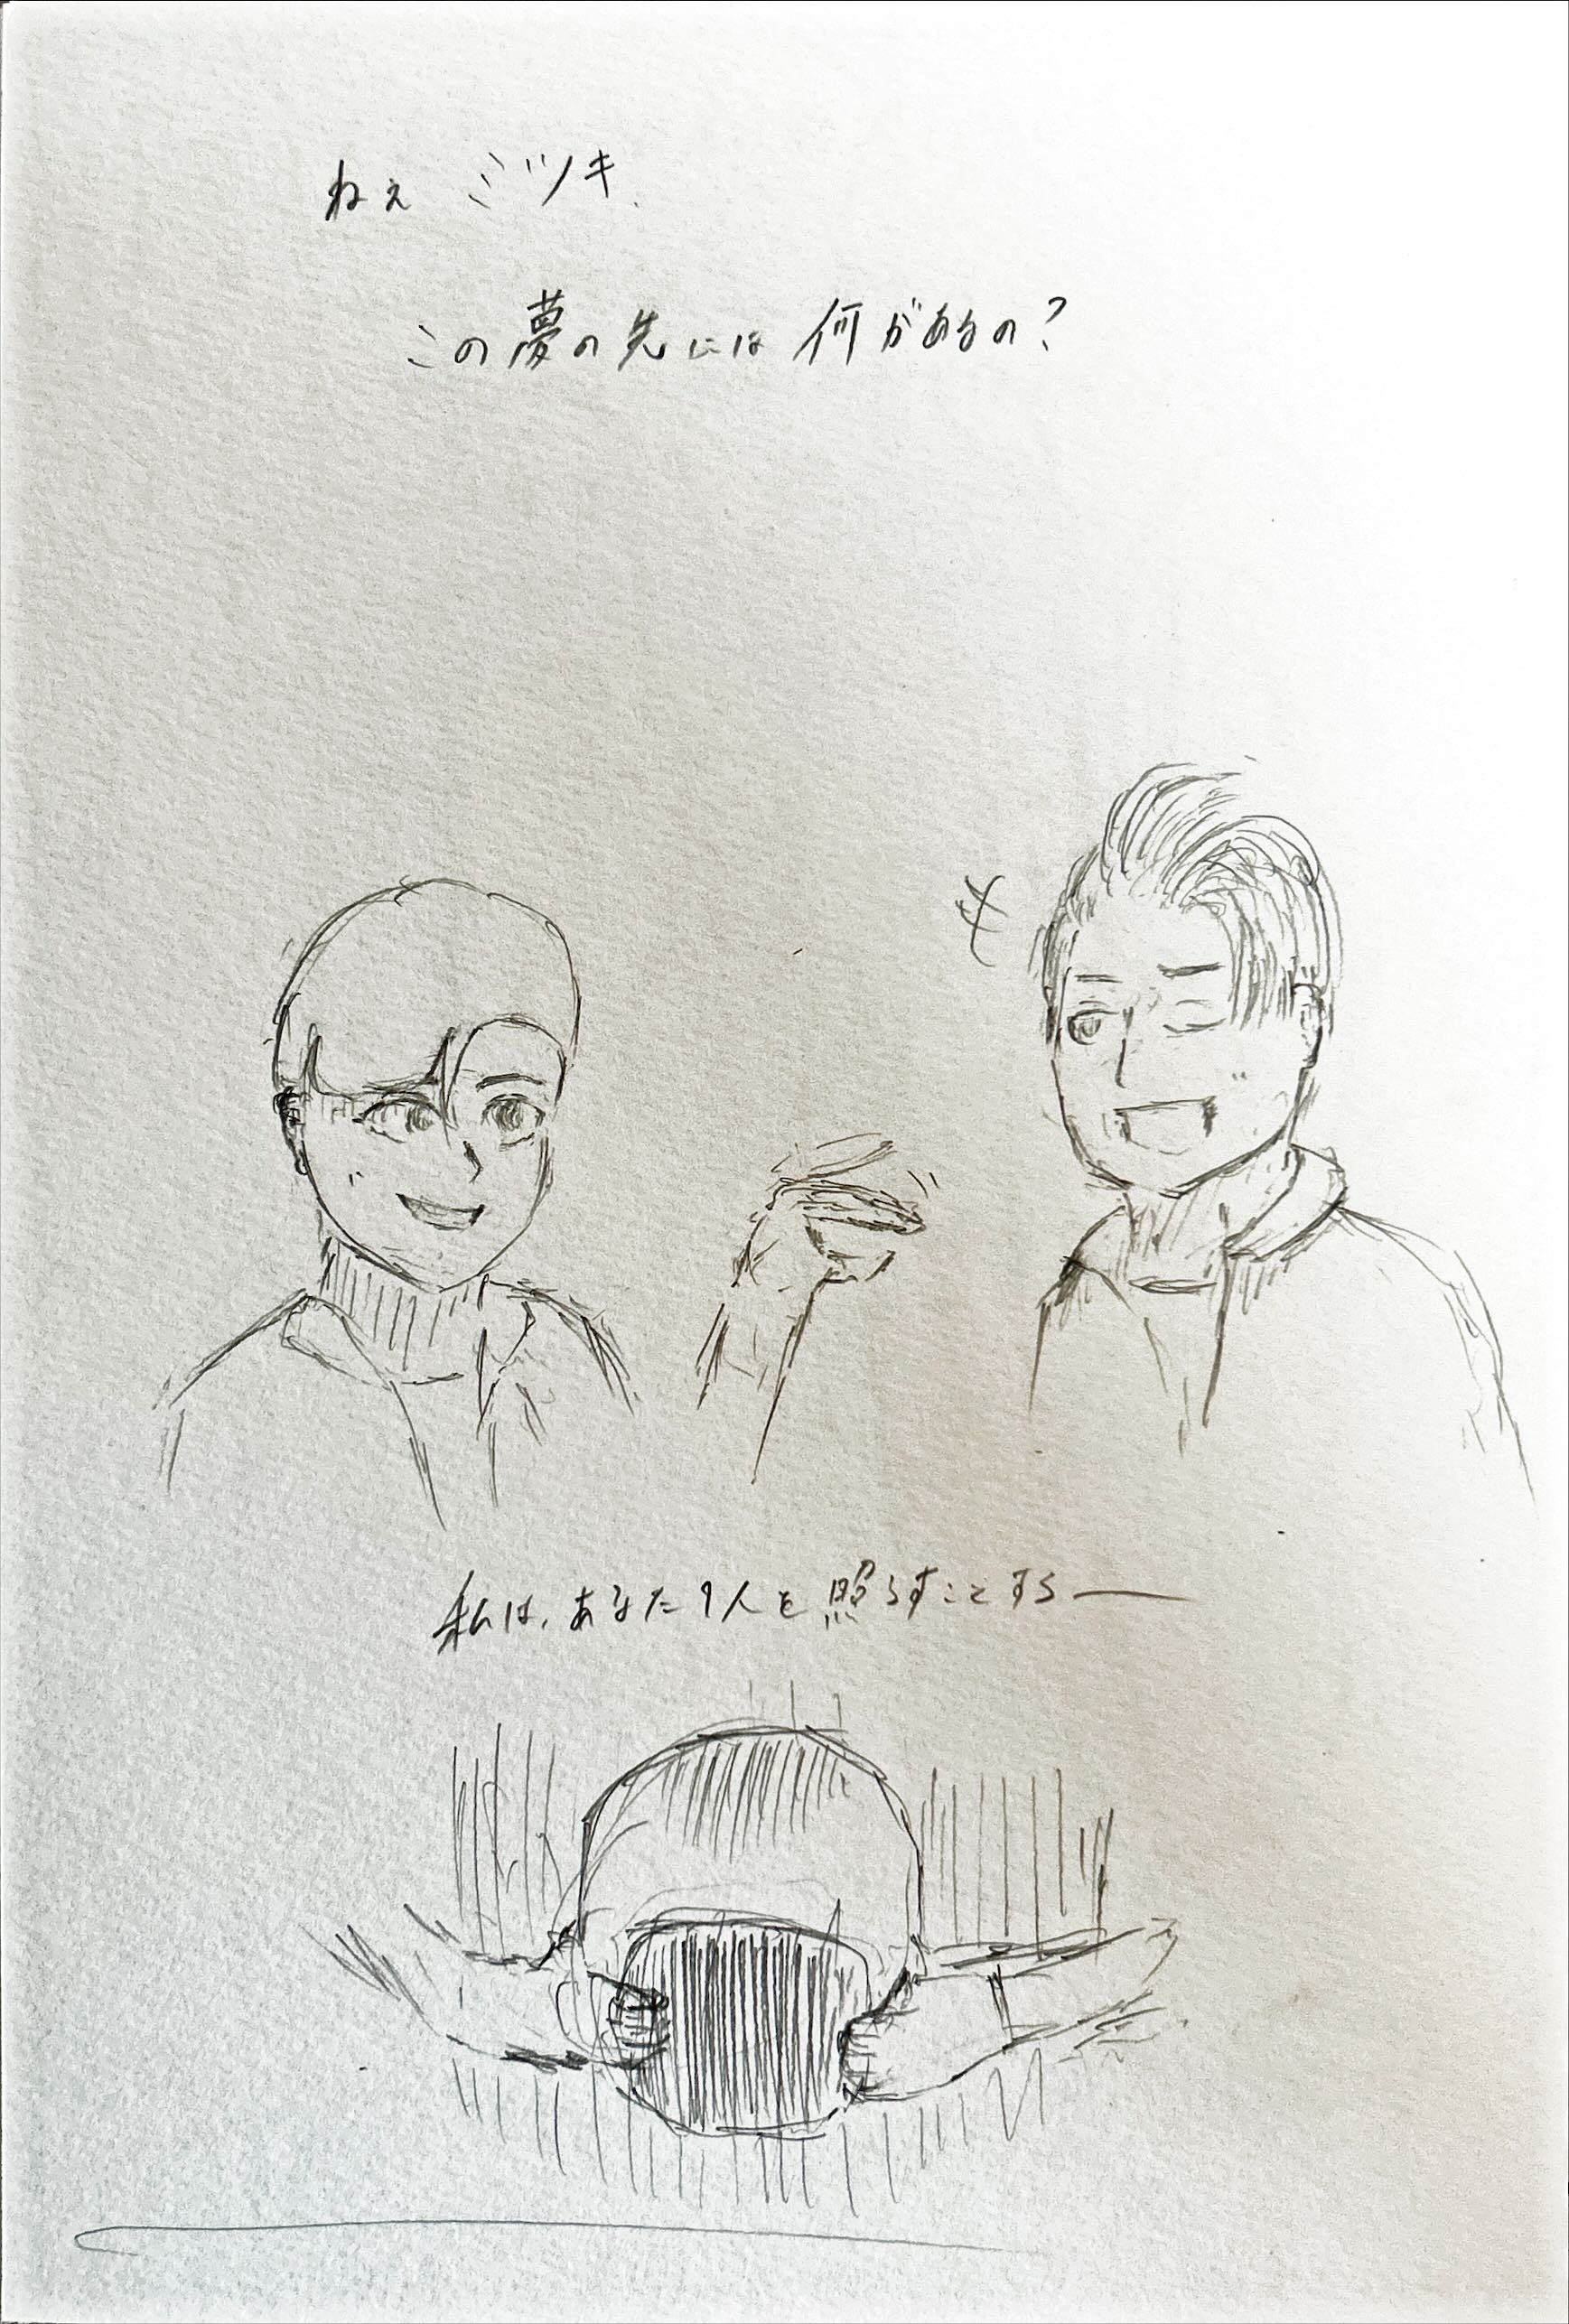 ねぇ ミツキ、
この夢の先には 何があるの?
私は、あなた1人を照らすことすら―